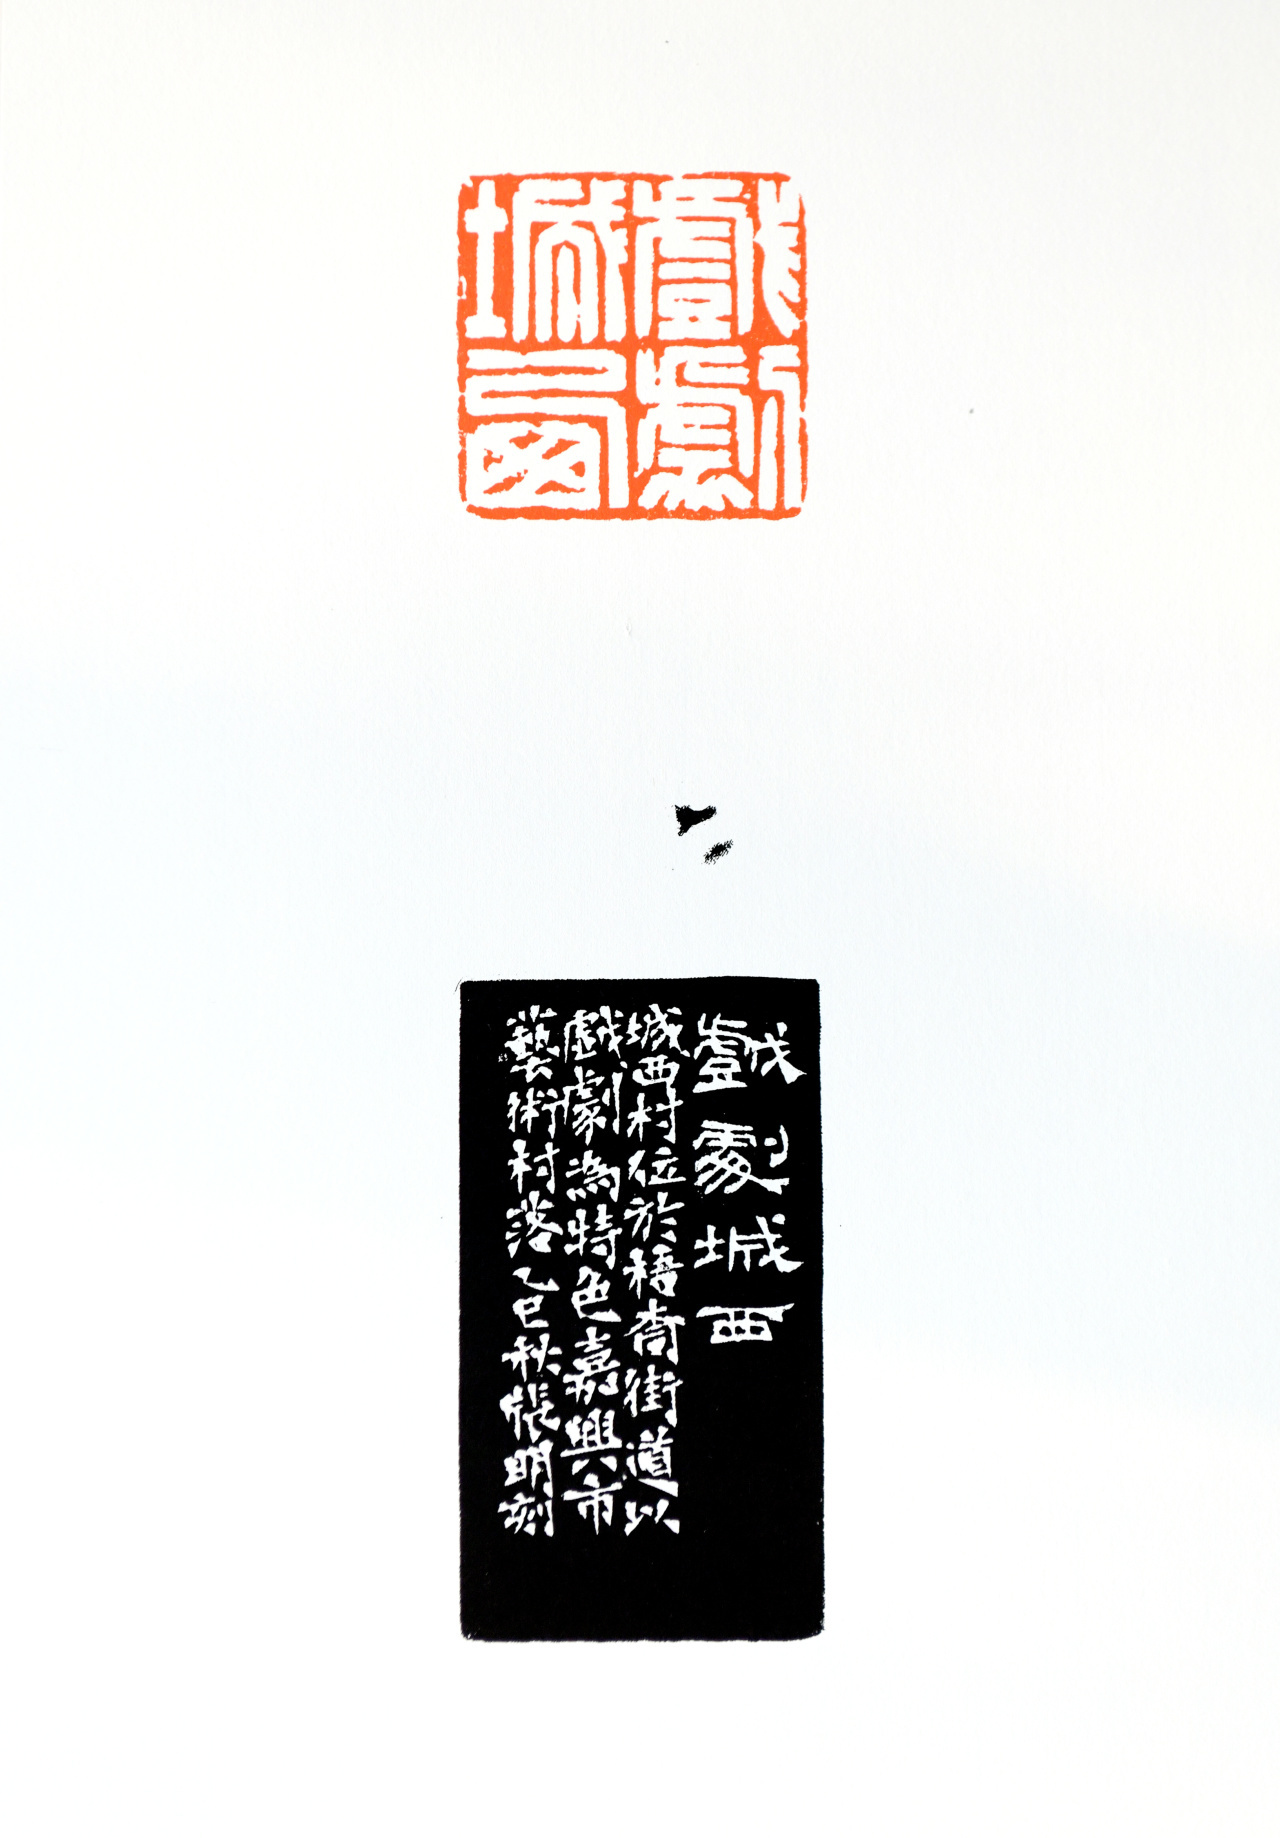 戲劇
城西
戲劇城西
城西村位於梧桐街道以
戲劇為特色嘉興市
藝術村落乙巳秋張明刻